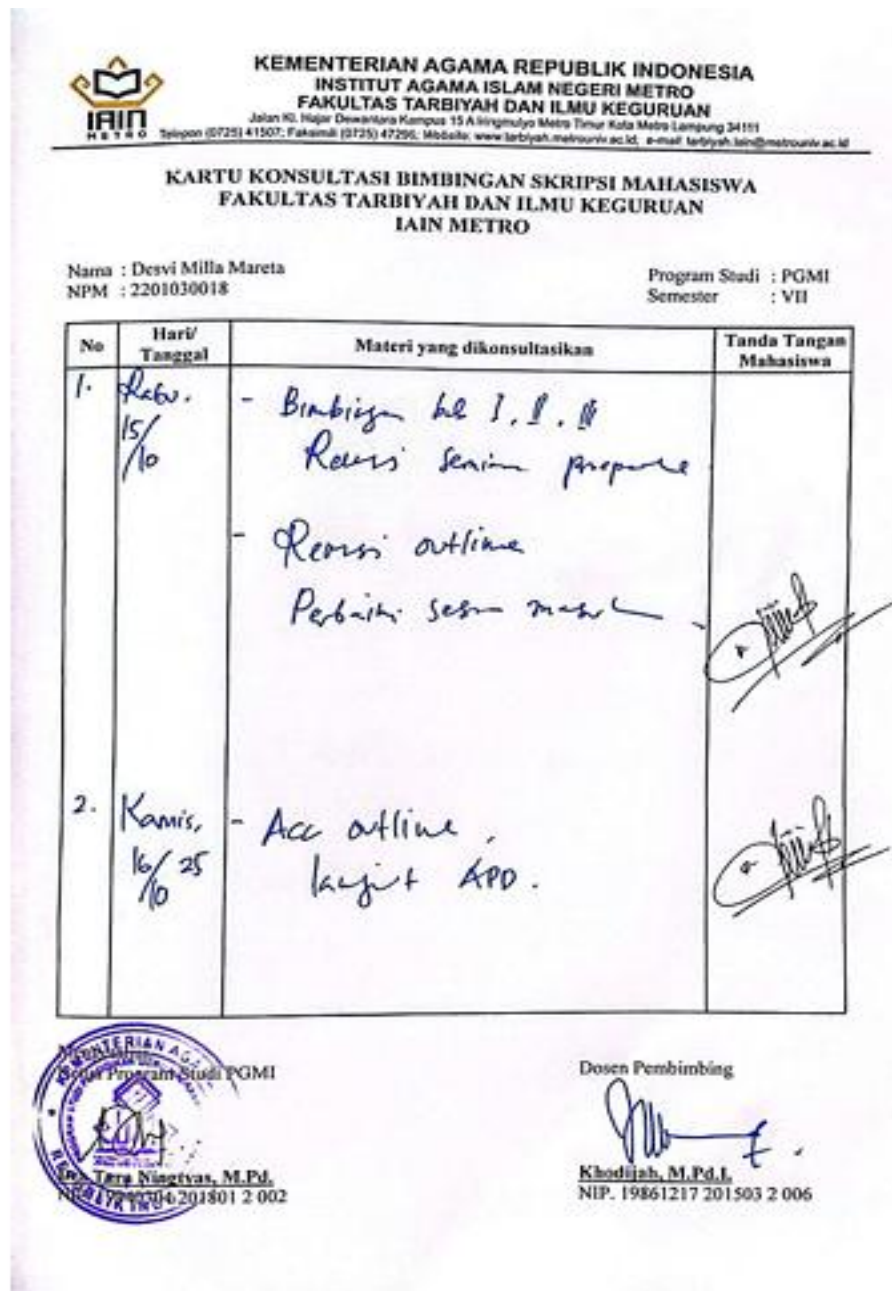 KEMENTERIAN AGAMA REPUBLIK INDONESIA
INSTITUT AGAMA ISLAM NEGERI METRO
FAKULTAS TARBIYAH DAN ILMU KEGURUAN
Jalan Ki. Hajar Dewantara Kampus 15 A Iringmulyo Metro Timur Kota Metro Lampung 34111
Telepon (0725) 41507; Faksimili (0725) 47296; Website: www.tarbiyah.metrouniv.ac.id; e-mail: tarbiyah.iain@metrouniv.ac.id
IAIN
METRO
KARTU KONSULTASI BIMBINGAN SKRIPSI MAHASISWA
FAKULTAS TARBIYAH DAN ILMU KEGURUAN
IAIN METRO
Nama : Desvi Milla Mareta
NPM : 2201030018
Program Studi : PGMI
Semester : VII
No
Hari/
Tanggal
Materi yang dikonsultasikan
Tanda Tangan
Mahasiswa
1. Rabu.
15/10
- Bimbingan I, II, III
Revisi
- Revisi outline
Perbaiki
2. Kamis,
16/10 25
- Acc outline,
lanjut APD.
Program Studi PGMI
Tara Ningtyas, M.Pd.
201801 2 002
Dosen Pembimbing
Khodijah, M.Pd.I.
NIP. 19861217 201503 2 006